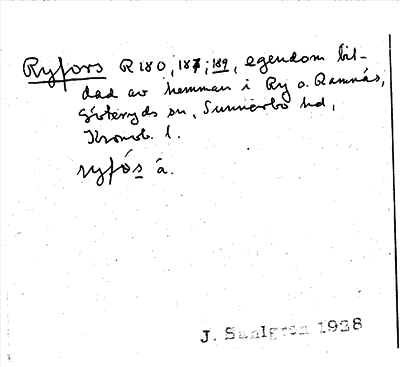 Ryfors R180, 187; 189, egendom bil-
dad av hemman i Ry o. Ramnås,
Göteryds sn, Sunnerbo hd,
Kronob. l.
ryfós à.
J. Sahlgren 1938